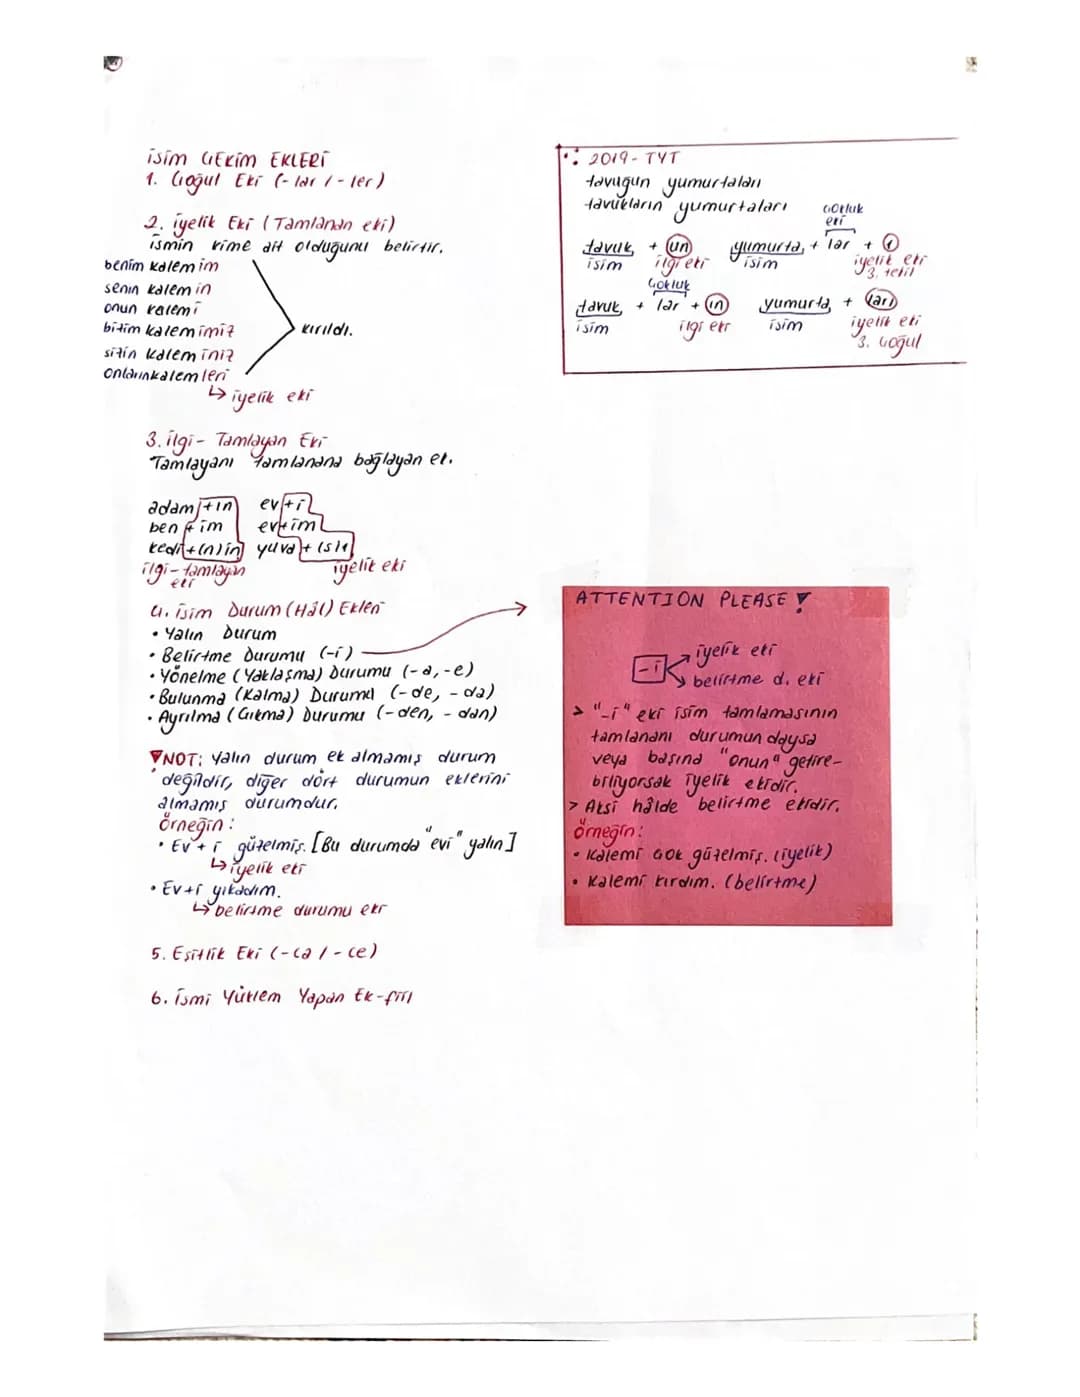 İSİM ÇEKİM EKLERİ
1. Çoğul Eki (-lar / -ler)
2. İyelik Eki (Tamlanan eki)
ismin kime ait olduğunu belirtir.
benim kalem im
senin kalem in
onun kalem i
bizim kalem imiz
sizin kalem iniz
onların kalem leri
kırıldı.
↳ iyelik eki
3. İlgi - Tamlayan Eki
Tamlayanı tamlanana bağlayan ek.
adam + ın ev + i
ben + im ev + im
kedi + (n) in yuva + (s) ı
ilgi - tamlayan eki
iyelik eki
4. İsim Durum (Hâl) Ekleri
• Yalın Durum
• Belirtme Durumu (-i)
• Yönelme (Yaklaşma) Durumu (-a, -e)
• Bulunma (Kalma) Durumu (-de, -da)
• Ayrılma (Çıkma) Durumu (-den, -dan)
NOT: Yalın durum ek almamış durum
değildir, diğer dört durumun eklerini
almamış durumdur.
Örneğin:
• Ev + i güzelmiş. [Bu durumda "evi" yalın]
↳ iyelik eki
• Ev + i yıkadım.
↳ belirtme durumu eki
5. Eşitlik Eki (-ca / -ce)
6. İsmi Yüklem Yapan Ek-fiil
2019 - TYT
tavuğun yumurtaları
tavukların yumurtaları
çokluk
eki
tavuk + un yumurta + lar + ı
isim ilgi eki isim iyelik eki
3. tekil
çokluk
tavuk + lar + ın yumurta + ları
isim ilgi eki isim iyelik eki
3. çoğul
ATTENTION PLEASE !
iyelik eki
-i
belirtme d. eki
> "-i" eki isim tamlamasının
tamlananı durumundaysa
veya başına "onun" getire-
biliyorsak iyelik ekidir.
> Aksi hâlde belirtme ekidir.
Örneğin:
• Kalemi çok güzelmiş. (iyelik)
• Kalemi kırdım. (belirtme)